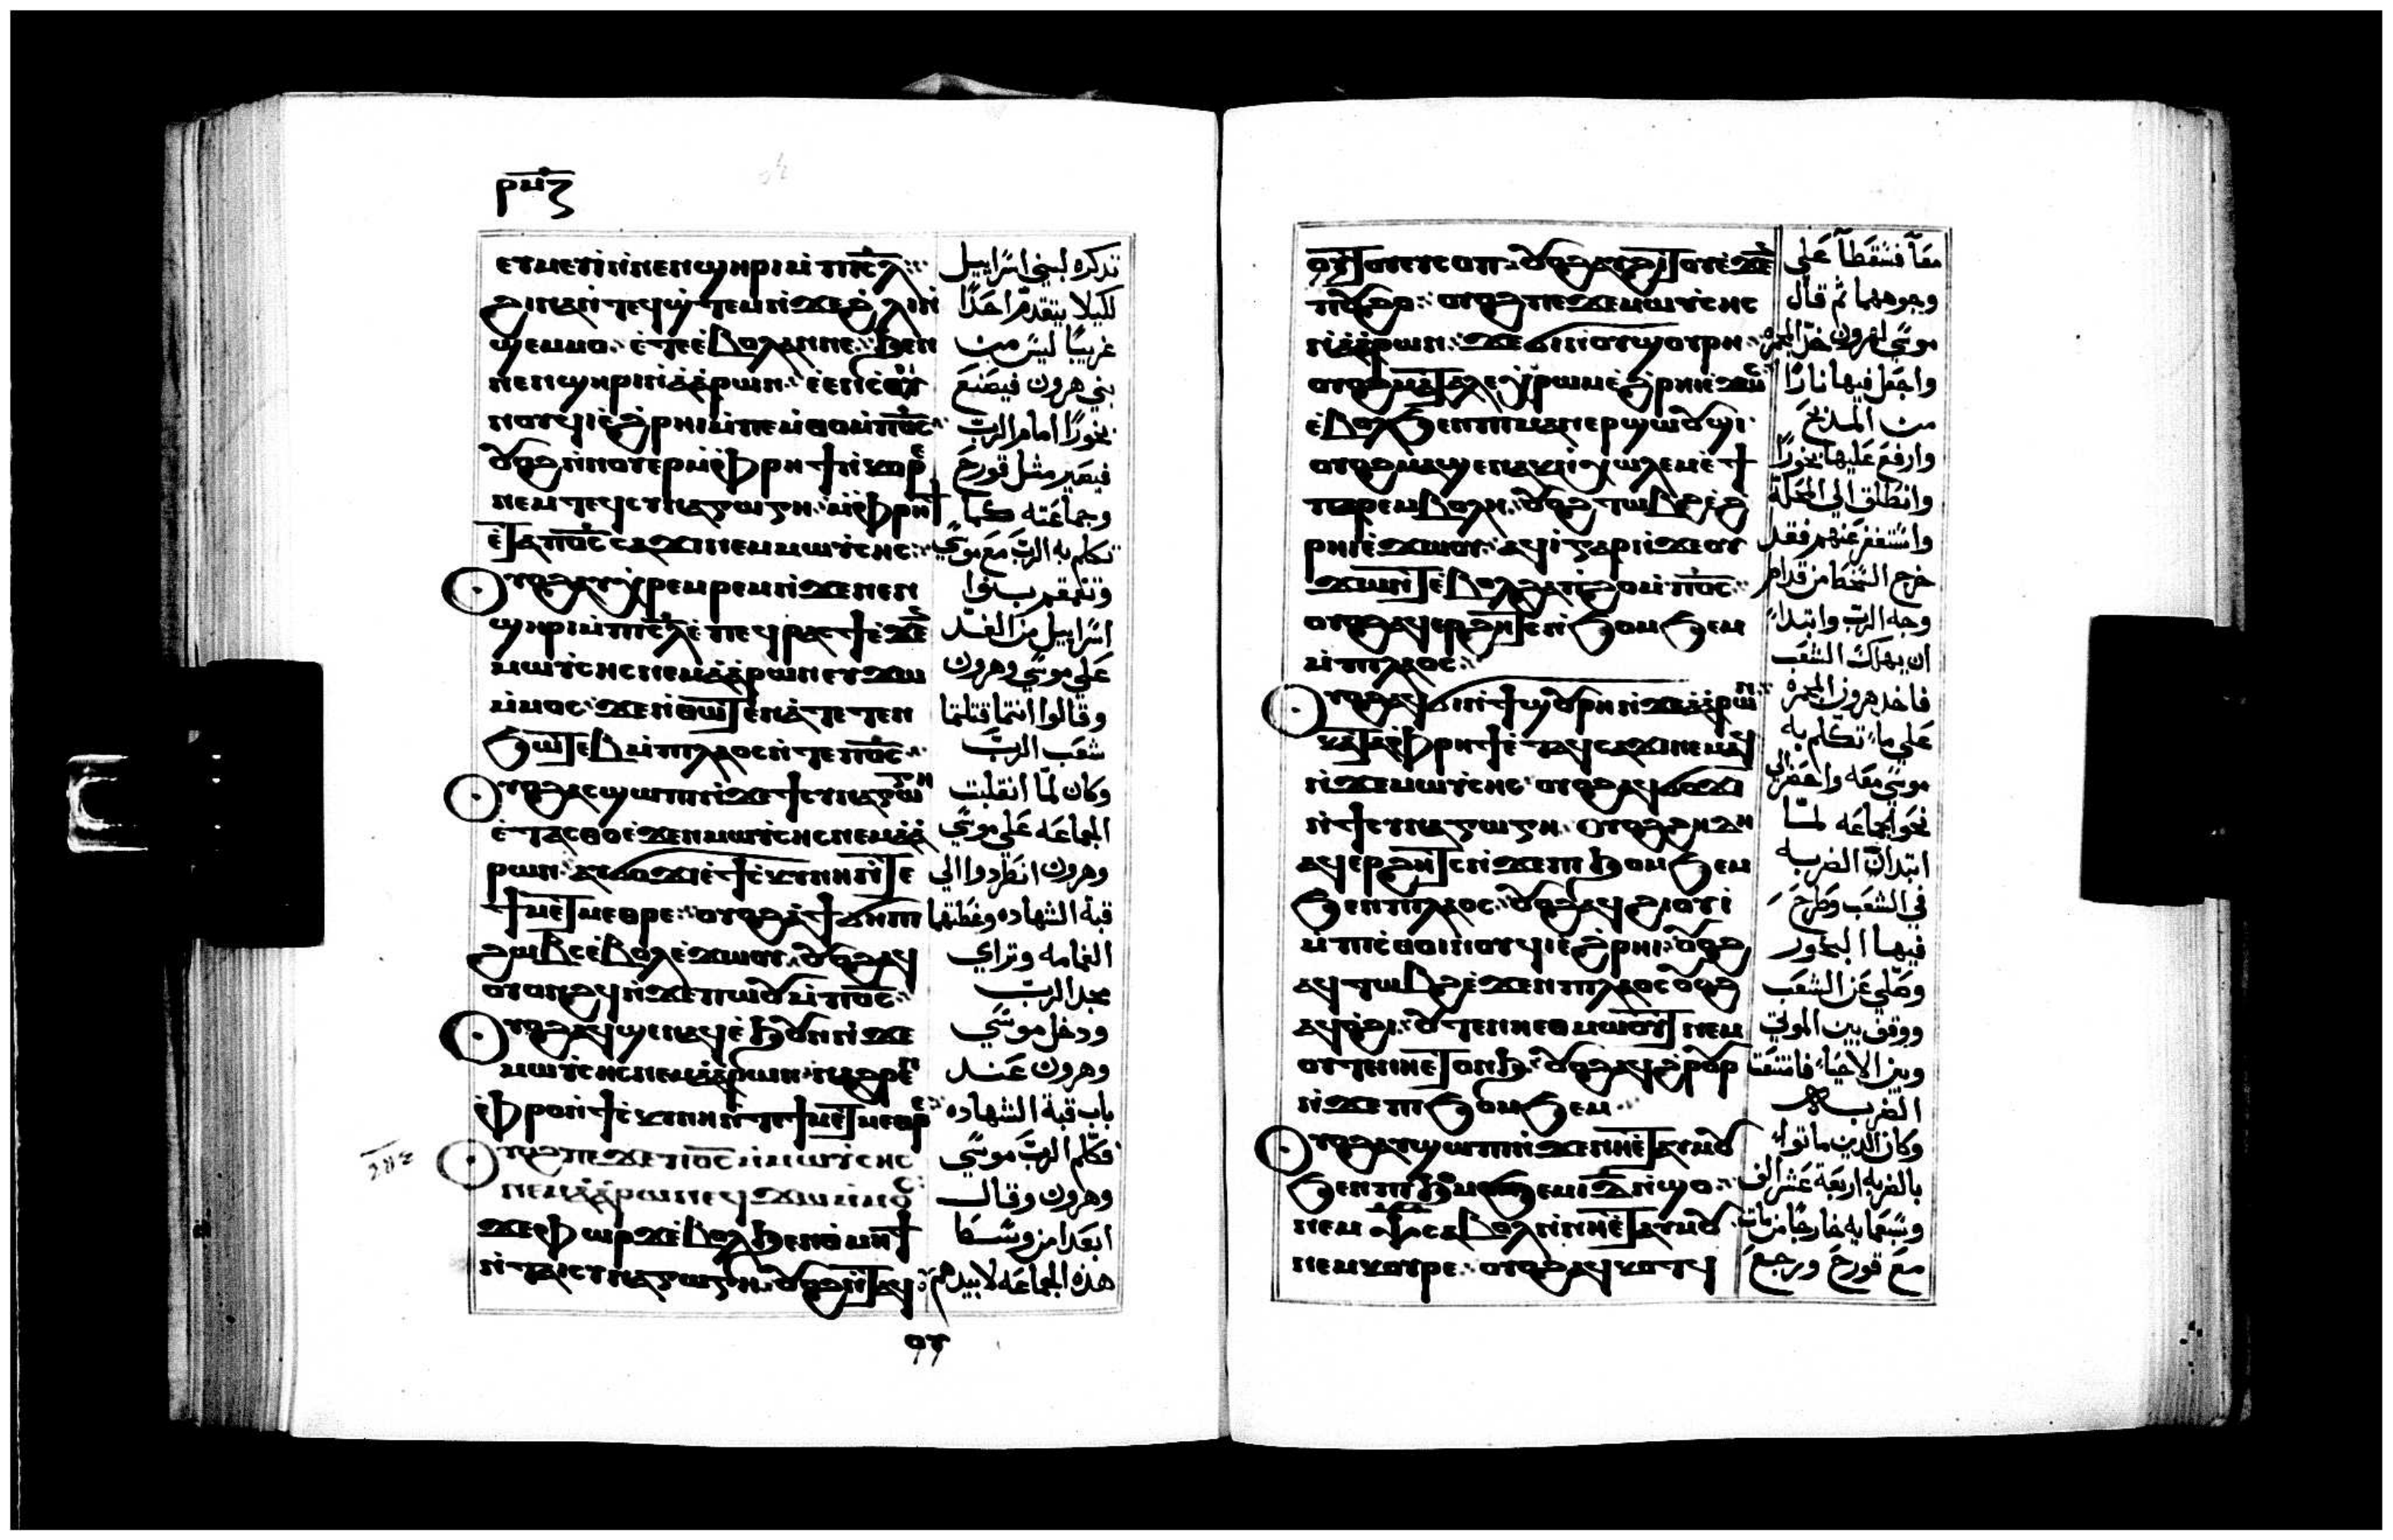 ⲣⲙⲍ
ⲉⲩⲙⲉⲩⲓ ⲛ̀ⲛⲉⲛϣⲏⲣⲓ ⲙ̀ⲡⲓⲥ̅ⲗ
ϩⲓⲛⲁ ⲛ̀ⲧⲉϥϣ̀ⲧⲉⲙⲓ ⲛ̀ϫⲉϩ̀ⲗⲓ ⲛ̀
ϣⲉⲙⲙⲟ ⲉ̀ⲧⲉ ⲉ̀ⲃⲟⲗ ⲁⲛⲡⲉ ϧⲉⲛ
ⲛⲉⲛϣⲏⲣⲓ ⲛ̀ⲁ̀ⲁ̀ⲣⲱⲛ ⲉ̀ⲉⲛⲥ̀ⲑⲟⲓ
ⲛⲟⲩϥⲓ ⲉ̀ϩ̀ⲣⲏⲓ ⲙ̀ⲡⲉⲙ̀ⲑⲟ ⲙ̀ⲡⲟ̅ⲥ̅
ⲟⲩⲟϩ ⲛ̀ⲛⲟⲩⲉⲣ ⲙ̀ⲫ̀ⲣⲏϯ ⲛ̀ⲕⲟⲣⲉ
ⲛⲉⲙ ⲧⲉϥⲥⲩⲛⲁⲅⲱⲅⲏ ⲙ̀ⲫ̀ⲣⲏϯ
ⲉ̀ⲧⲁⲡⲟ̅ⲥ̅ ⲥⲁϫⲓ ⲛⲉⲙ ⲙⲱⲩ̀ⲥⲏⲥ
ⲟⲩⲟϩ ⲁⲩⲭ̀ⲣⲉⲙⲣⲉⲙ ⲛ̀ϫⲉⲛⲉⲛ
ϣⲏⲣⲓ ⲙ̀ⲡⲓⲥ̅ⲗ ⲉ̀ⲡⲉϥⲣⲁⲥϯ ⲉ̀ϫⲉⲛ
ⲙⲱⲩ̀ⲥⲏⲥ ⲛⲉⲙ ⲁ̀ⲁ̀ⲣⲱⲛ ⲉⲩϫⲱ
ⲙ̀ⲙⲟⲥ ϫⲉ ⲛ̀ⲑⲱⲧⲉⲛ ⲁ̀ⲧⲉⲧⲉⲛ
ϧⲱⲧⲉⲃ ⲙ̀ⲡⲓⲗⲁⲟⲥ ⲛ̀ⲧⲉ ⲡⲟ̅ⲥ̅
ⲟⲩⲟϩ ⲁⲥϣⲱⲡⲓ ⲛ̀ϫⲉϯⲥⲩⲛⲁⲅⲱⲅⲏ
ⲉ̀ⲧⲁⲥⲑⲟ ⲉ̀ϫⲉⲛ ⲙⲱⲩ̀ⲥⲏⲥ ⲛⲉⲙ ⲁ̀ⲁ̀
ⲣⲱⲛ ⲁⲩϭⲟϫⲓ ⲉ̀ϯⲥ̀ⲕⲩⲛⲏ ⲛ̀ⲧⲉ
ϯⲙⲉⲧⲙⲉⲑⲣⲉ ⲟⲩⲟϩ ⲁ̀ϯϭⲏⲡⲓ
ϩⲱⲃⲥ ⲉ̀ⲃⲟⲗ ⲉ̀ϫⲱⲟⲩ ⲟⲩⲟϩ ⲁϥ
ⲟⲩⲟⲛϩϥ ⲛ̀ϫⲉⲡⲱⲟⲩ ⲙ̀ⲡⲟ̅ⲥ̅
ⲟⲩⲟϩ ⲁϥϣⲉⲛⲁϥ ⲉ̀ϧⲟⲩⲛ ⲛ̀ϫⲉ
ⲙⲱⲩ̀ⲥⲏⲥ ⲛⲉⲙ ⲁ̀ⲁ̀ⲣⲱⲛ ⲛⲁϩⲣⲉⲛ
ⲫ̀ⲣⲟ ⲛ̀ϯⲥ̀ⲕⲩⲛⲏ ⲛ̀ⲧⲉ ϯⲙⲉⲧⲙⲉⲑⲣⲉ
ⲟⲩⲟϩ ⲡⲉϫⲉ ⲡⲟ̅ⲥ̅ ⲙ̀ⲙⲱⲩ̀ⲥⲏⲥ
ⲛⲉⲙ ⲁ̀ⲁ̀ⲣⲱⲛ ⲉϥϫⲱ ⲙ̀ⲙⲟⲥ
ϫⲉ ⲫⲱⲣϫ ⲉ̀ⲃⲟⲗ ϧⲉⲛ ⲑ̀ⲙⲏϯ
ⲛ̀ⲧⲁⲓⲥⲩⲛⲁⲅⲱⲅⲏ ⲟⲩⲟϩ ⲛ̀ⲧⲁϥ
ⲟⲩ
تدكره لبني اسراييل
لكيلا يتقدم احدًا
غريبًا ليس من
بني هرون فيصنع
بخورًا امام الرب
فيصير مثل قورح
وجماعته كما
تكلم به الرب مع موسي
وتقمقم بنوا
اسراييل من الغد
علي موسي وهرون
وقالوا انتما قتلتما
شعب الرب
وكان لما انقلبت
الجماعه علي موسي
وهرون انطردوا الي
قبة الشهاده وغطتها
الغمامه وتراي
مجد الرب
ودخل موسي
وهرون عند
باب قبة الشهاده
فكلم الرب موسي
وهرون وقال
ابعدا من وسط
هذه الجماعه لابيدهم
ⲟⲩⲧⲟⲩ ⲉⲩⲥⲟⲡ ⲟⲩⲟϩ ⲁⲩϩⲓⲧⲟⲩ ⲉ̀ϫⲉⲛ
ⲡⲟⲩϩⲟ ⲟⲩⲟϩ ⲡⲉϫⲉ ⲙⲱⲩ̀ⲥⲏⲥ
ⲛ̀ⲁ̀ⲁ̀ⲣⲱⲛ ϫⲉ ϭⲓ ⲛ̀ⲟⲩϣⲟⲩⲣⲏ
ⲟⲩⲟϩ ⲙⲁⲧⲁⲗⲉ ⲭ̀ⲣⲱⲙ ⲉ̀ϩ̀ⲣⲏⲓ ⲉ̀ϫⲱⲥ
ⲉ̀ⲃⲟⲗ ϧⲉⲛ ⲡⲓⲙⲁⲛⲉⲣϣⲱⲟⲩϣⲓ
ⲟⲩⲟϩ ⲙⲁϣⲉⲛⲁⲕ ⲛ̀ⲭⲱⲗⲉⲙ ⲉ̀ϯ
ⲡⲁⲣⲉⲙⲃⲟⲗⲏ ⲟⲩⲟϩ ⲧⲱⲃϩ ⲉ̀ϩ̀
ⲣⲏⲓ ⲉ̀ϫⲱⲟⲩ ⲁϥⲓ̀ ⲅⲁⲣ ⲛ̀ϫⲉ ⲟⲩ
ϫⲱⲛⲧ ⲉ̀ⲃⲟⲗ ϩⲁⲡ̀ϩⲟ ⲙ̀ⲡⲟ̅ⲥ̅
ⲟⲩⲟϩ ⲁϥⲉⲣϩⲏⲧⲥ ⲛ̀ϧⲟⲙϧⲉⲙ
ⲙ̀ⲡⲓⲗⲁⲟⲥ
ⲟⲩⲟϩ ⲁϥϭⲓ ⲛ̀ϯϣⲟⲩⲣⲏ ⲛ̀ϫⲉ ⲁ̀ⲁ̀ⲣⲱⲛ
ⲕⲁⲧⲁⲫ̀ⲣⲏϯ ⲉ̀ⲧⲁϥⲥⲁϫⲓ ⲛⲉⲙⲁϥ
ⲛ̀ϫⲉ ⲙⲱⲩ̀ⲥⲏⲥ ⲟⲩⲟϩ ⲁϥϭⲟϫⲓ
ⲛ̀ϯⲥⲩⲛⲁⲅⲱⲅⲏ ⲟⲩⲟϩ ϩⲏⲇⲏ
ⲁϥⲉⲣϩⲏⲧⲥ ⲛ̀ϫⲉ ⲡⲓϧⲟⲙϧⲉⲙ
ϧⲉⲛ ⲡⲓⲗⲁⲟⲥ ⲟⲩⲟϩ ⲁϥϩⲓⲟⲩⲓ̀
ⲙ̀ⲡⲓⲥ̀ⲑⲟⲓⲛⲟⲩϥⲓ ⲉ̀ϩ̀ⲣⲏⲓ ⲟⲩⲟϩ
ⲁϥⲧⲱⲃϩ ⲉ̀ϫⲉⲛ ⲡⲓⲗⲁⲟⲥ ⲟⲩⲟϩ
ⲁϥⲟ̀ϩⲓ ⲟⲩⲧⲉ ⲛⲏⲉⲑⲙⲱⲟⲩⲧ ⲛⲉⲙ
ⲟⲩⲧⲉ ⲛⲏⲉⲧⲟⲛϧ ⲟⲩⲟϩ ⲁϥϩ̀ⲣⲟⲩⲣ
ⲛ̀ϫⲉ ⲡⲓϧⲟⲙϧⲉⲙ
ⲟⲩⲟϩ ⲁⲩϣⲱⲡⲓ ⲛ̀ϫⲉ ⲛⲏⲉ̀ⲧⲁⲩⲙⲟⲩ
ϧⲉⲛ ⲡⲓϧⲟⲙϧⲉⲙ ⲓ̅ⲇ̅ ⲛ̀ϣⲟ
ⲛⲉⲙ ⲯ̅ ⲥⲁⲃⲟⲗ ⲛ̀ⲛⲏⲉ̀ⲧⲁⲩⲙⲟⲩ
ⲛⲉⲙ ⲕⲟⲣⲉ ⲟⲩⲟϩ ⲁϥⲕⲟⲧϥ
معًا فسقطا علي
وجوههما ثم قال
موسي لهرون خد المجمره
واجعل فيها نارًا
من المدبح
وارفع عليها بخورًا
وانطلق الي المحلة
واستغفر عنهم فقد
خرج السخط من قدام
وجه الرب وابتدا
ان يهلك الشعب
فاخد هرون المجمره
علي ما تكلم به
موسي معه واحضر الي
نحو الجماعه لما
ابتدات الضربه
في الشعب وطرح
فيها البخور
وصلي عن الشعب
ووقف بين الموتي
وبين الاحيا فانتقت
الضربه
وكان الدين ماتوا
بالضربه اربعة عشر الف
وسبعمايه خارجًا من مات
مع قورح ورجع